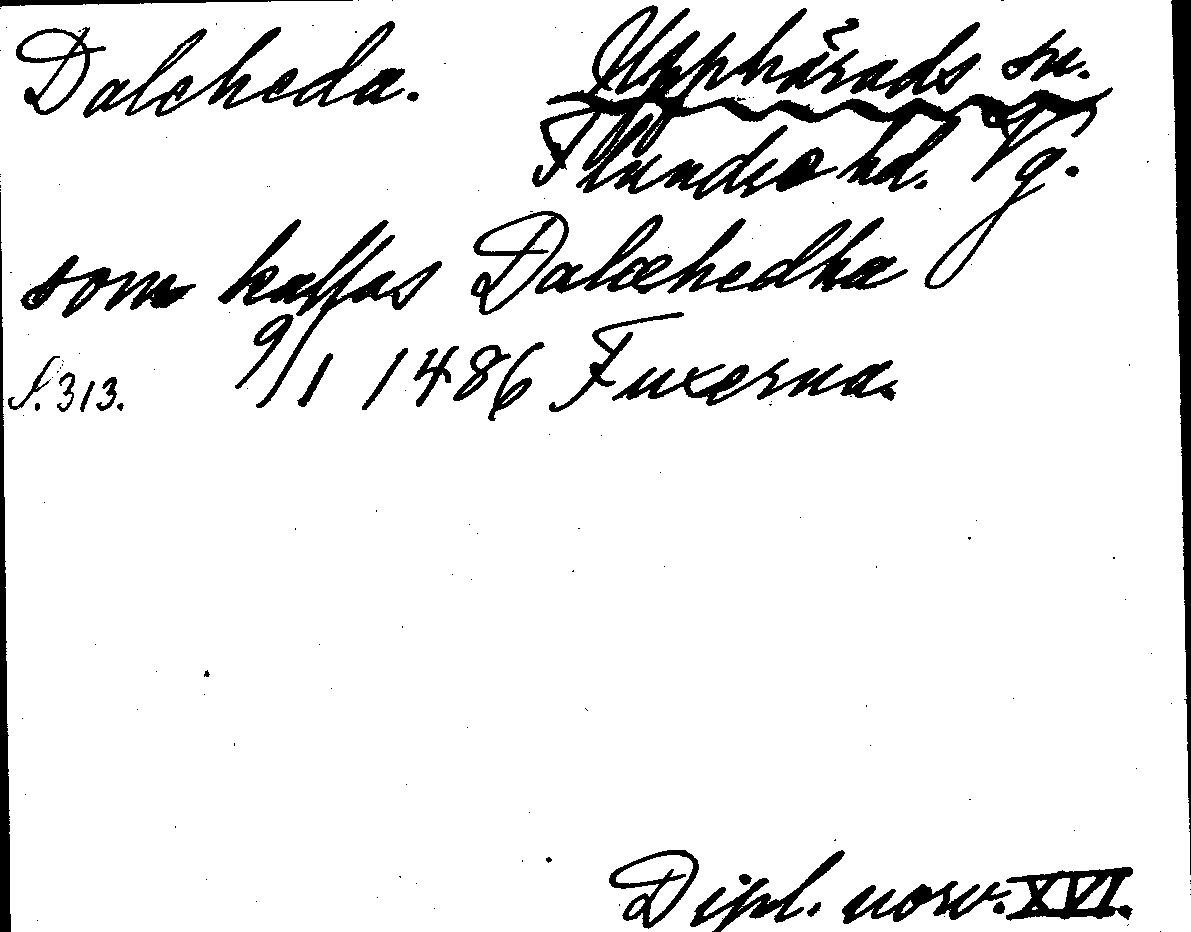 Daleheda. Upphärads sn.
Flundre hd. Vg.
som kallas Dalæhedha
S. 313. 9/1 1486 Fuxerna.
Dipl. norv. XVI.